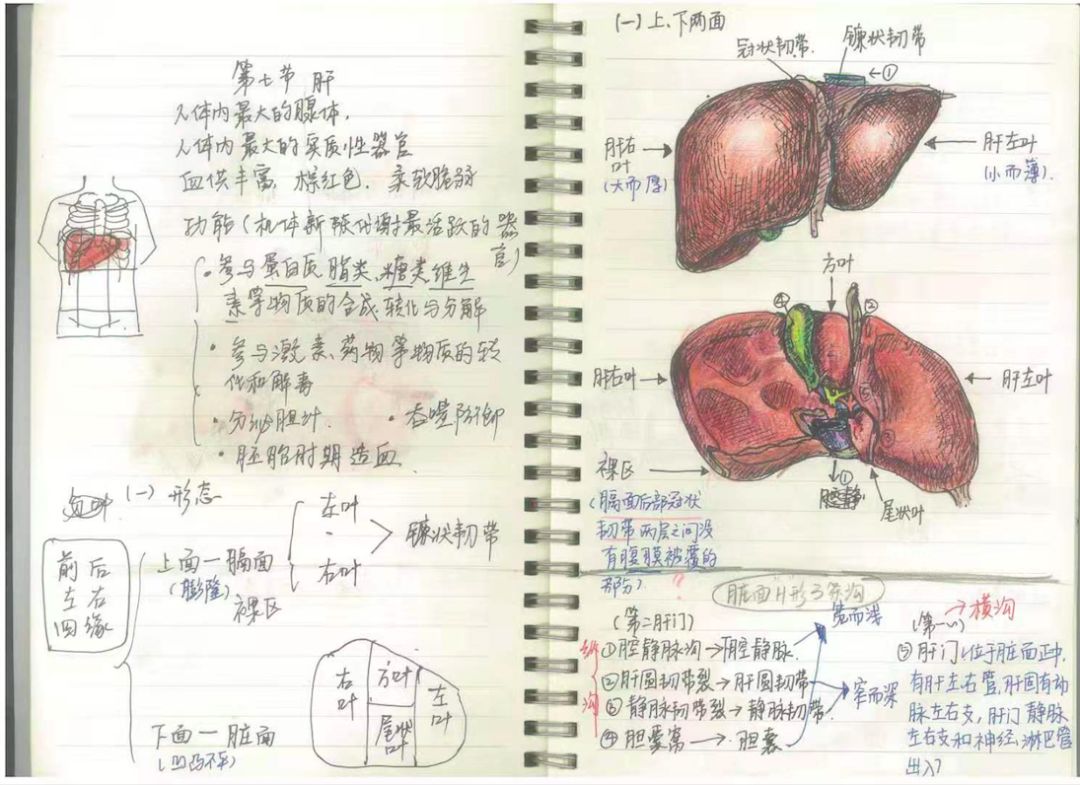 第七节 肝
人体内最大的腺体.
人体内最大的实质性器官
血供丰富, 棕红色, 柔软脆
功能(机体新陈代谢最活跃的器官)
·参与蛋白质、脂类、糖类、维生
素等物质的合成、转化与分解
·参与激素、药物等物质的转
化和解毒
·分泌胆汁. ·吞噬防御
·胚胎时期造血
(一) 形态
前后
左右
四缘
上面—膈面
(膨隆)
裸区
左叶
右叶
镰状韧带
下面—脏面
(凹凸不平)
右叶
方叶
尾状叶
左叶
(一)上、下两面
冠状韧带.
镰状韧带
①
肝右叶
(大而厚)
肝左叶
(小而薄).
方叶
④
②
肝右叶
肝左叶
裸区
①
腔静
尾状叶
(膈面后部冠状
韧带两层之间没
有腹膜被覆的
部分)
?
脏面"H"形3条沟
(第二肝门)
宽而浅
纵沟
①腔静脉沟→下腔静脉.
②肝圆韧带裂→肝圆韧带
③静脉韧带裂→静脉韧带.
④胆囊窝→胆囊
窄而深
(第一)
横沟
⑤肝门(位于脏面正中,
有肝左右管,肝固有动
脉左右支,肝门静脉
左右支和神经、淋巴管
出入)